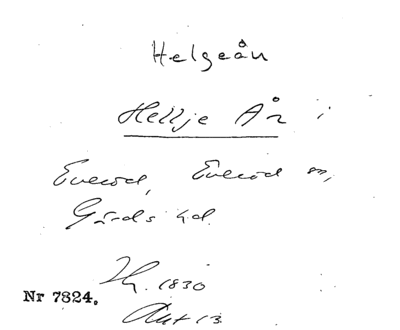 Helgeån
Hellje Ån i
Everöd, Everöd sn,
Gärds hd.
Nr 7824.
1830
Akt 13